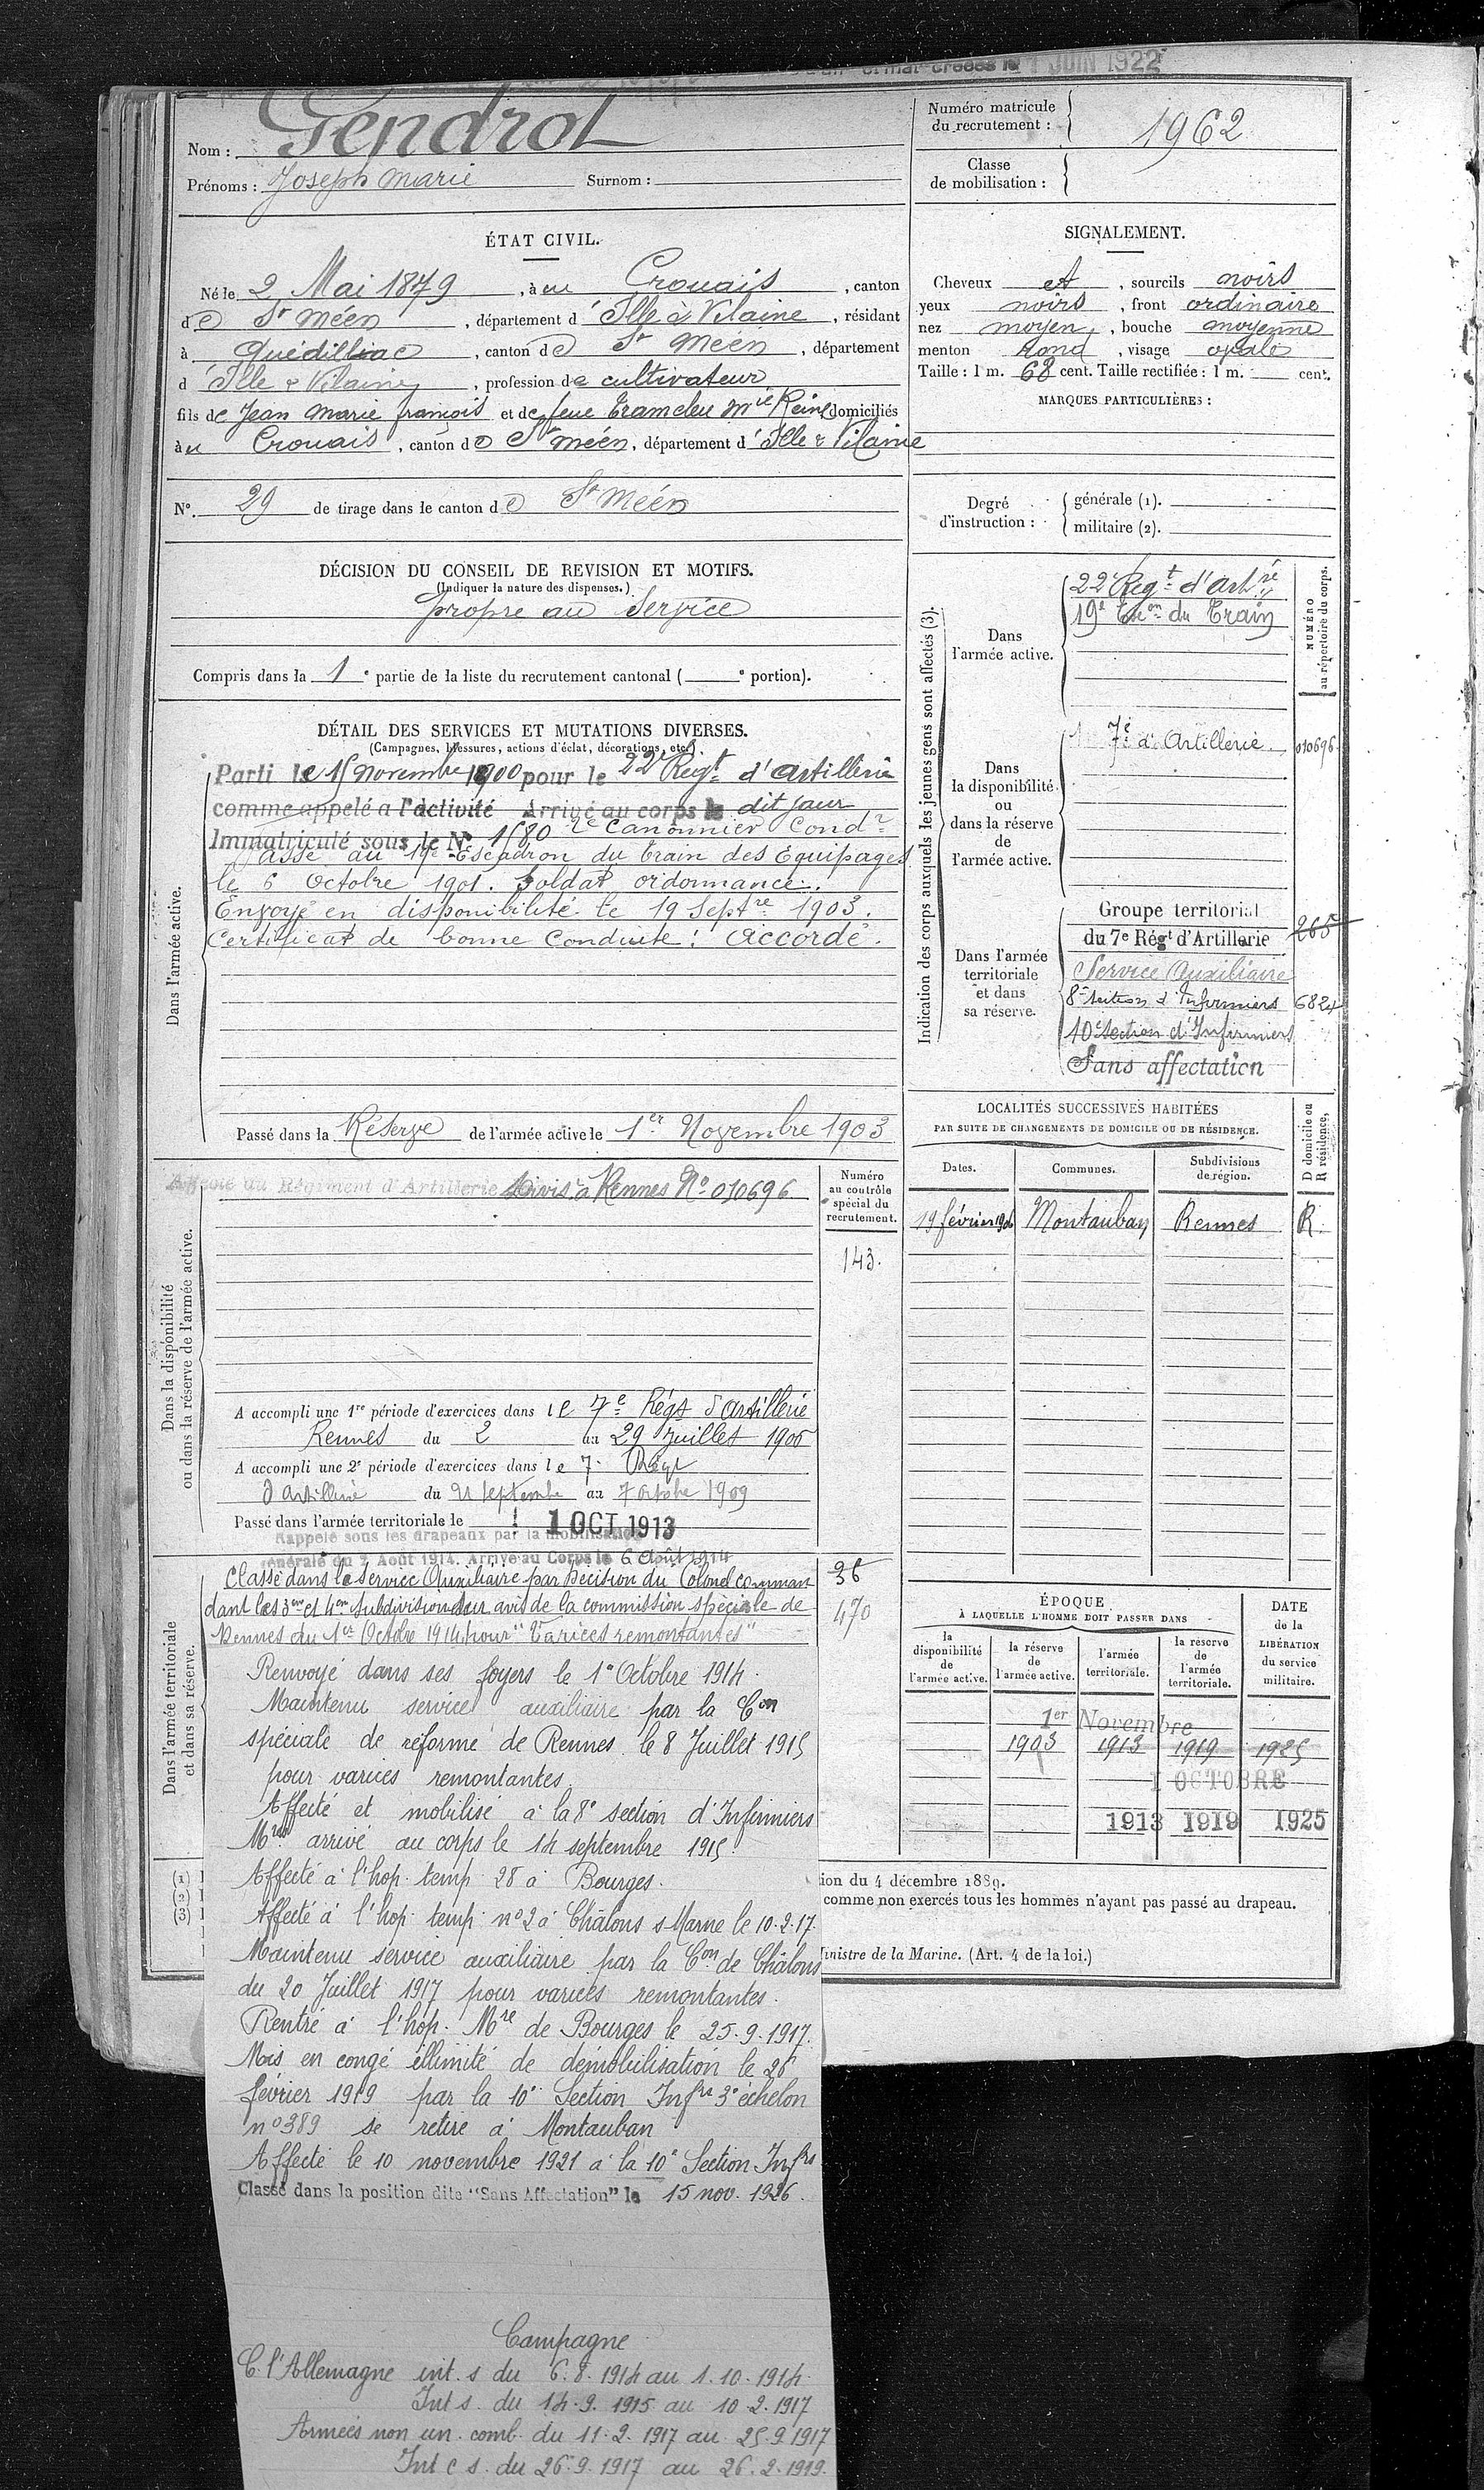 créées le 1 JUIN 1922
Nom : Gendrot
Prénoms : Joseph Marie Surnom :
Numéro matricule
du recrutement : 1962
Classe
de mobilisation :
ÉTAT CIVIL.
Né le 2 Mai 1879, à au Crouais, canton
de St Méen, département d'Ille & Vilaine, résidant
à Quédillac, canton de St Méen, département
d'Ille & Vilaine, profession de cultivateur
fils de Jean Marie françois et de feue Trameleu Mie Reine domiciliés
à u Crouais, canton de St Méen, département d'Ille & Vilaine
N° 29 de tirage dans le canton de St Méen
SIGNALEMENT.
Cheveux et, sourcils noirs
yeux noirs, front ordinaire
nez moyen, bouche moyenne
menton rond, visage ovale
Taille : 1 m. 68 cent. Taille rectifiée : 1 m. cent.
MARQUES PARTICULIÈRES :
Degré
d'instruction :
générale (1).
militaire (2).
DÉCISION DU CONSEIL DE REVISION ET MOTIFS.
(Indiquer la nature des dispenses.)
propre au Service
Compris dans la 1e partie de la liste du recrutement cantonal ( e portion).
DÉTAIL DES SERVICES ET MUTATIONS DIVERSES.
(Campagnes, blessures, actions d'éclat, décorations, etc.)
Dans l'armée active.
Parti le 15 novembre 1900 pour le 22e Régt d'Artillerie
comme appelé a l'activité Arrivé au corps le dit jour
Immatriculé sous le N° 1580 2e Canonnier Condr
Passé au 19e Escadron du train des Equipages
le 6 Octobre 1901. Soldat ordonnance.
Envoyé en disponibilité le 19 Septre 1903.
Certificat de bonne Conduite : Accordé.
Passé dans la Réserve de l'armée active le 1er Novembre 1903
Indication des corps auxquels les jeunes gens sont affectés (3).
NUMÉRO
au répertoire du corps.
Dans
l'armée active.
22e Régt d'Artrie
19e Eson du Train
Dans
la disponibilité
ou
dans la réserve
de
l'armée active.
7e d'Artillerie 010696
Dans l'armée
territoriale
et dans
sa réserve.
Groupe territorial
du 7e Régt d'Artillerie 265
Service Auxiliaire
8e section d'Infirmiers 6824
10e section d'Infirmiers
Sans affectation
LOCALITÉS SUCCESSIVES HABITÉES
PAR SUITE DE CHANGEMENTS DE DOMICILE OU DE RÉSIDENCE.
D domicile ou
R résidence.
Dates.
Communes.
Subdivisions
de région.
19 février 1906 Montauban Rennes R.
Dans la disponibilité
ou dans la réserve de l'armée active.
Affecté au Régiment d'Artillerie Divisre à Rennes N° 010696
Numéro
au contrôle
spécial du
recrutement.
143.
A accompli une 1re période d'exercices dans le 7e Régt d'Artillerie
Rennes du 2 au 29 Juillet 1906
A accompli une 2e période d'exercices dans le 7e Régt
d'Artillerie du 21 septembre au 7 octobre 1909
Passé dans l'armée territoriale le 1 OCT 1913
Rappelé sous les drapeaux par la mobilisation
générale du 2 Août 1914. Arrivé au Corps le 6 Août 1914
Dans l'armée territoriale
et dans sa réserve.
36
470
Classé dans le Service Auxiliaire par Décision du Colonel comman
dant les 3me et 4me Subdivisions sur avis de la commission spéciale de
Rennes du 1er Octobre 1914 pour "Varices remontantes"
Renvoyé dans ses foyers le 1er Octobre 1914.
Maintenu service auxiliaire par la Con
spéciale de réforme de Rennes le 8 Juillet 1915
pour varices remontantes.
Affecté et mobilisé à la 8e section d'Infirmiers
Mres arrivé au corps le 14 septembre 1915.
Affecté à l'hop. temp. 28 à Bourges.
Affecté à l'hop. temp. n° 2 à Châlons s Marne le 10.2.17.
Maintenu service auxiliaire par la Con de Châlons
du 20 Juillet 1917 pour varices remontantes.
Rentré à l'hop. Mre de Bourges le 25.9.1917.
Mis en congé illimité de démobilisation le 26
février 1919 par la 10e Section Infrs 3e échelon
n° 389 se retire à Montauban
Affecté le 10 novembre 1921 à la 10e Section Infrs
Classé dans la position dite "Sans Affectation" le 15 nov. 1926.
Campagne
C. l'Allemagne int. s du 6.8.1914 au 1.10.1914.
Int s. du 14.9.1915 au 10.2.1917
Armées non un. comb. du 11.2.1917 au 25.9.1917
Int c s. du 26.9.1917 au 26.2.1919.
ÉPOQUE
À LAQUELLE L'HOMME DOIT PASSER DANS
DATE
de la
LIBÉRATION
du service
militaire.
la
disponibilité
de
l'armée active.
la réserve
de
l'armée active.
l'armée
territoriale.
la réserve
de
l'armée
territoriale.
1er Novembre
1903 1913 1919 1925
1 OCTOBRE
1913 1919 1925
(1)
(2)
(3)
ion du 4 décembre 1889.
comme non exercés tous les hommes n'ayant pas passé au drapeau.
inistre de la Marine. (Art. 4 de la loi.)